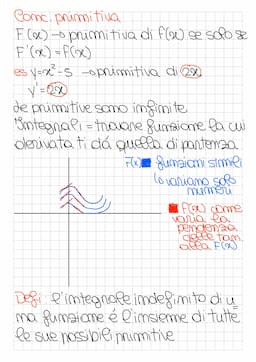 Conc. primitiva
F(x) → primitiva di f(x) se solo se
F'(x) = f(x)
es y=x²-5 → primitiva di 2x
y' = 2x
Le primitive sono infinite
Integrali = trovare funzione la cui
derivata ti dà quella di partenza
F(x) funzioni simili
↳ variano solo
numeri
f(x) come
varia la
pendenza
delle tan
alla F(x)
Defi: l'integrale indefinito di u
na funzione é l'insieme di tutte
le sue possibili primitive